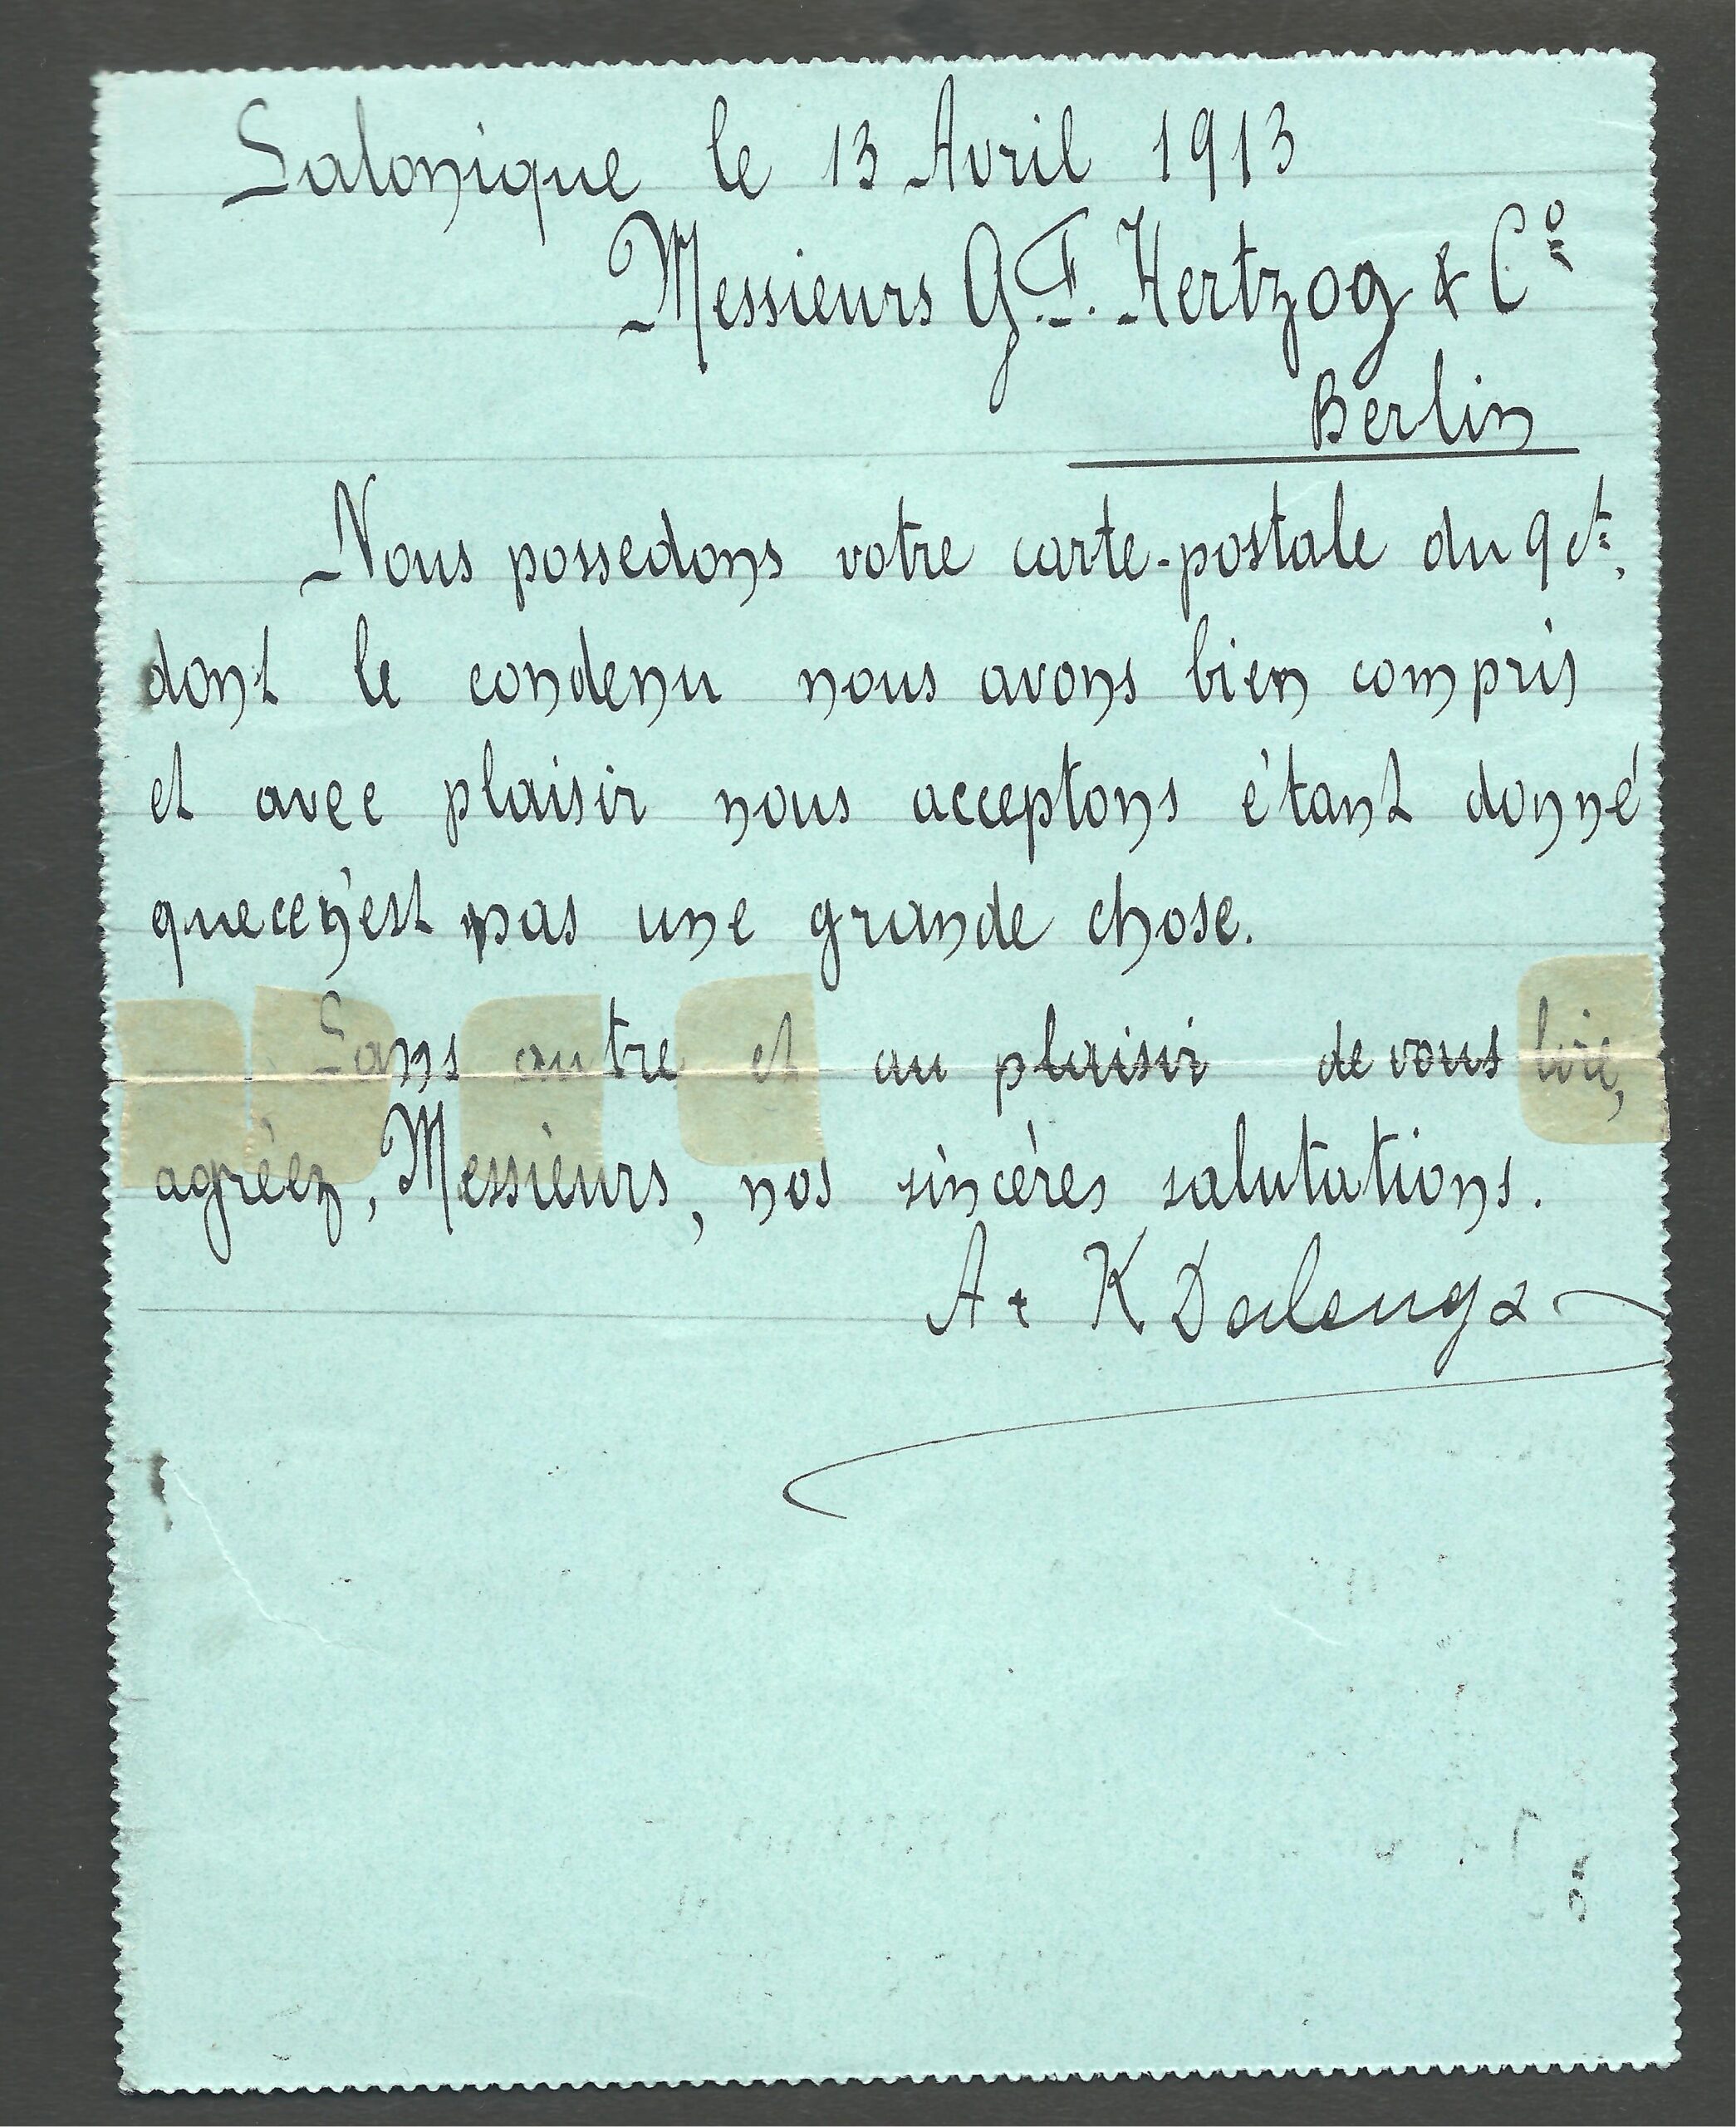 Salonique le 13 Avril 1913
Messieurs G.F. Hertzog & Cº
Berlin
Nous possedons votre carte-postale du 9 ct,
dont le condenu nous avons bien compris
et avec plaisir nous acceptons étant donné
que ce n'est pas une grande chose.
Sans autre et au plaisir de vous lire,
agréez, Messieurs, nos sincéres salutations.
A & K